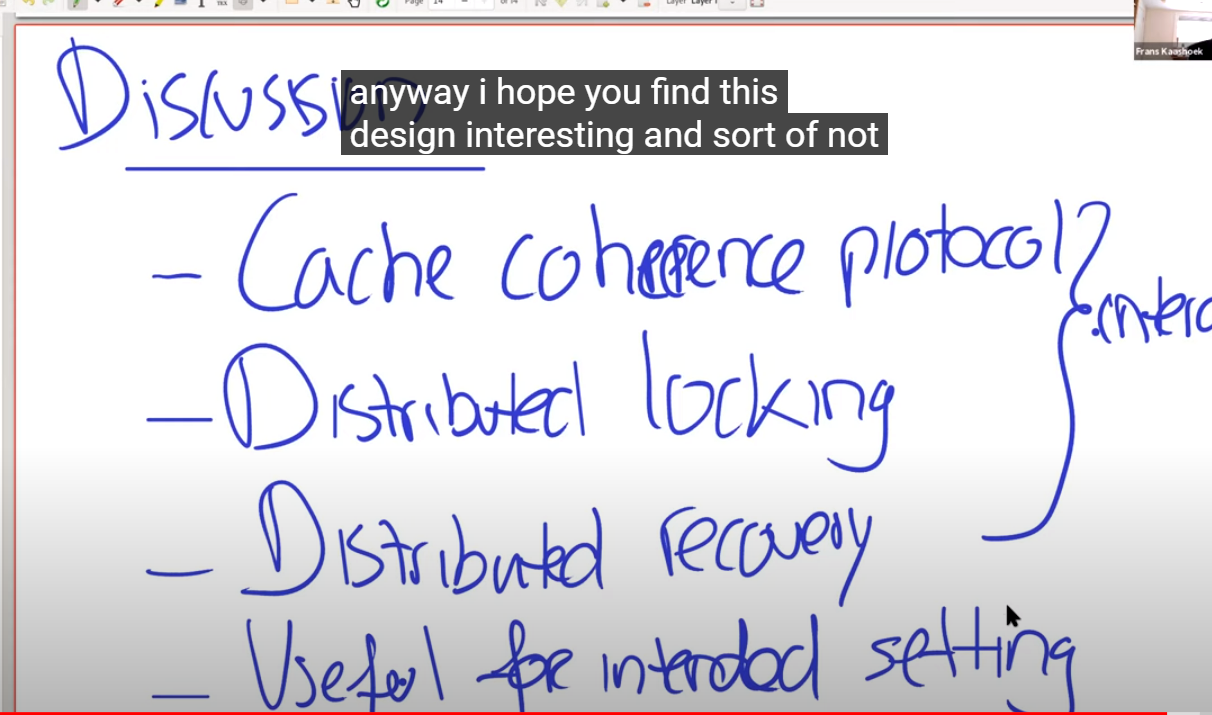 Page 14 of 14 Layer Layer 1
Frans Kaashoek
Discussion
anyway i hope you find this
design interesting and sort of not
- Cache coherence protocol
- Distributed locking
- Distributed recovery
- Useful for intended setting